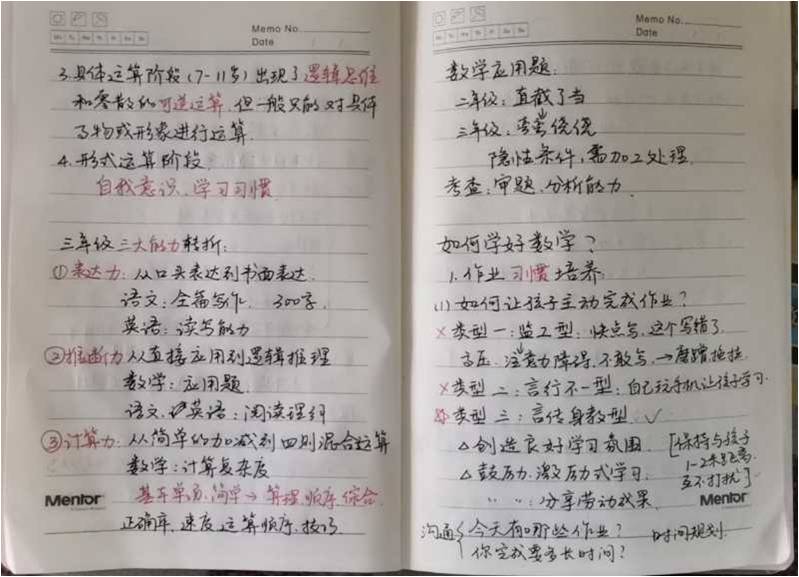 Memo No.
Date
3.具体运算阶段(7-11岁)出现了逻辑思维
和零散的可逆运算,但一般只能对具体
事物或形象进行运算.
4.形式运算阶段.
自我意识、学习习惯
三年级三大能力转折:
①表达力:从口头表达到书面表达.
语文:全篇写作. 300字.
英语:读写能力
②推断力 从直接应用到逻辑推理
数学:应用题.
语文、英语:阅读理解
③计算力:从简单的加减到四则混合运算
数学:计算复杂度
基于单项,简单→算理,顺序,综合
正确率、速度、运算顺序、技巧
Mentor
Memo No.
Date
数学应用题:
二年级:直截了当
三年级:弯弯绕绕
隐性条件,需加工处理.
考查:审题、分析能力.
如何学好数学?
1.作业习惯培养:
(1)如何让孩子主动完成作业?
×类型一:监工型:快点写,这个写错了.
高压.注意力障碍,不敢写,→磨蹭拖拉
×类型二:言行不一型:自己玩手机让孩子学习.
类型三:言传身教型.✓
△创造良好学习氛围.[保持与孩子
1-2米距离,
互不打扰]
△鼓励力.激励式学习.
〃 〃:分享劳动成果.
Mentor
沟通{今天有哪些作业? 时间规划.
你完成要多长时间?